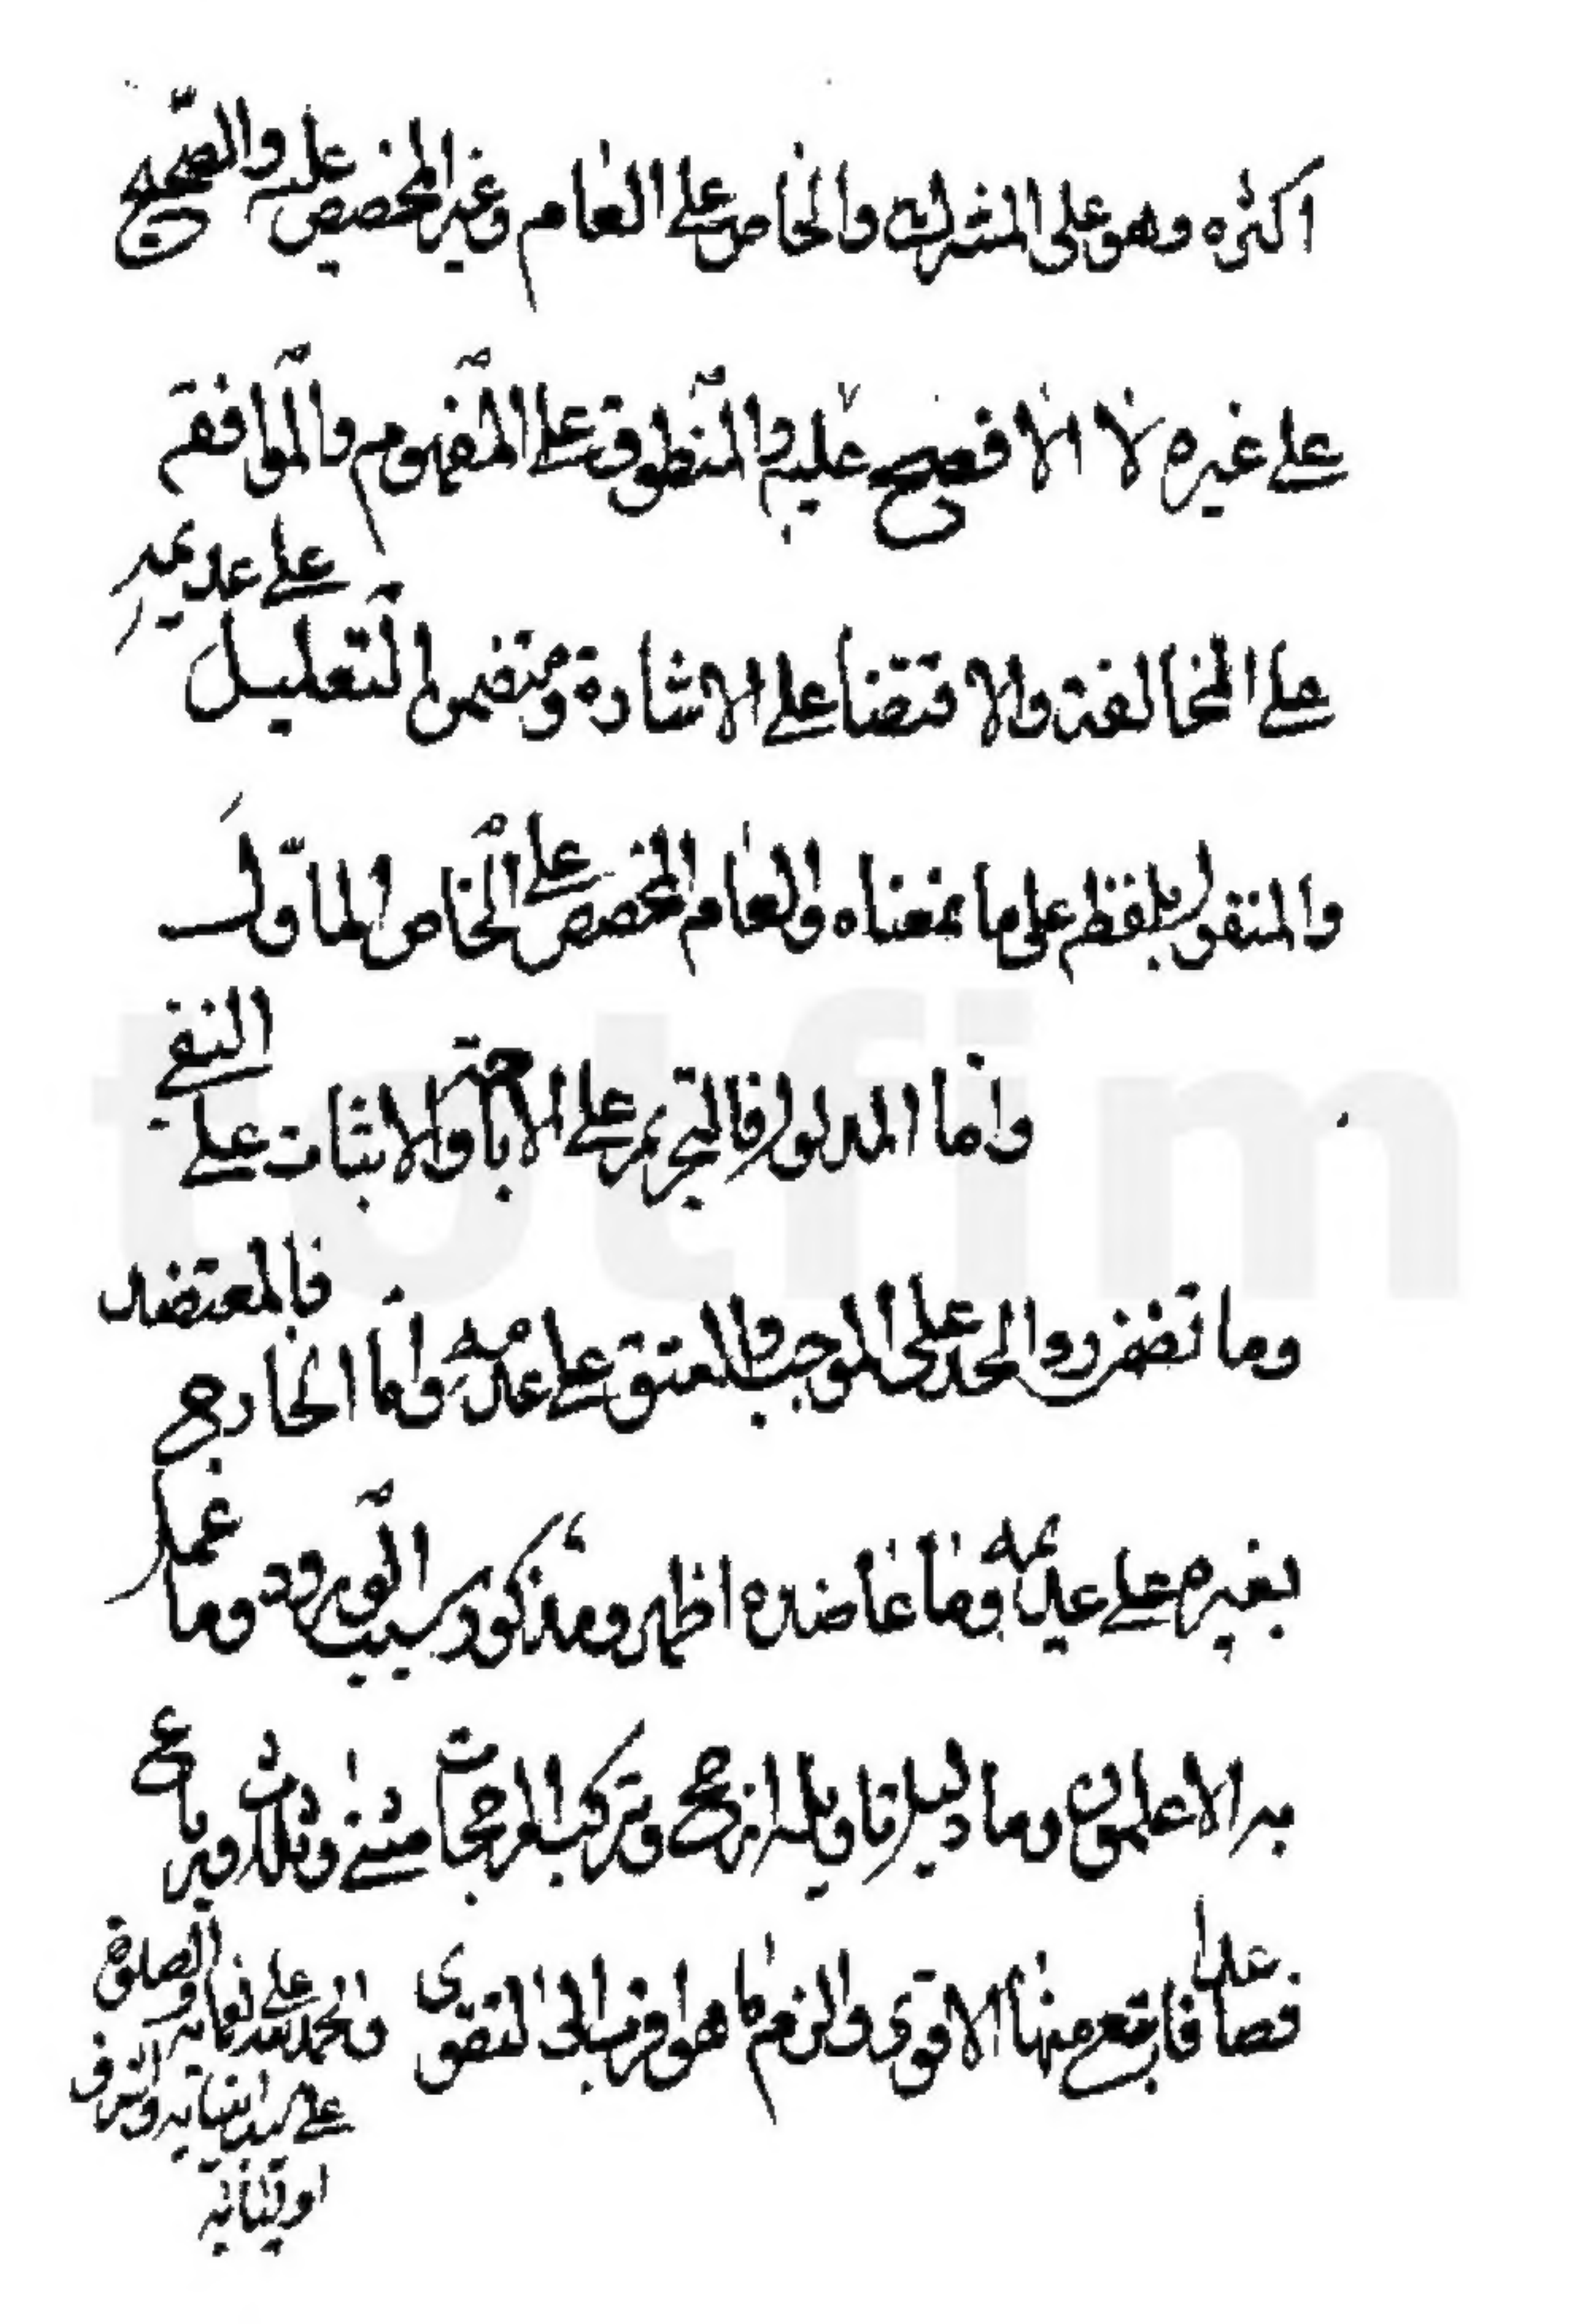 اكثره وهو على المشترك والخاص على العام وغير المخصص عليه والفصيح
على غيره لا الافصح عليه والمنطوق على المفهوم والموافقه
على المخالفة والاقتضا على الاشارة ومتضمن التعليل على عديمه
والمنقول بلفظه على ما بمعناه والعام المخصص على الخاص المأوّل
واما المدلول فالتحريم على الاباحة والاثبات على النفي
وما تضمن درو الحد على الموجب والعتق على عدمه واما الخارجي فالمعتضد
بغيره على عديمه وما عاضده اظهر ومذكور سبب الورود وما عمل
به الاعلمون وما دليل تاويله ارجح وتركب المرجحات مثنى وثلاث ورباع
فصاعدا فاتبع منها الاقوى والزم ما هو اقرب الى التقوى والحمد لله على نعمايه والصلوة
على سيد انبيايه واشرف
اوليائه